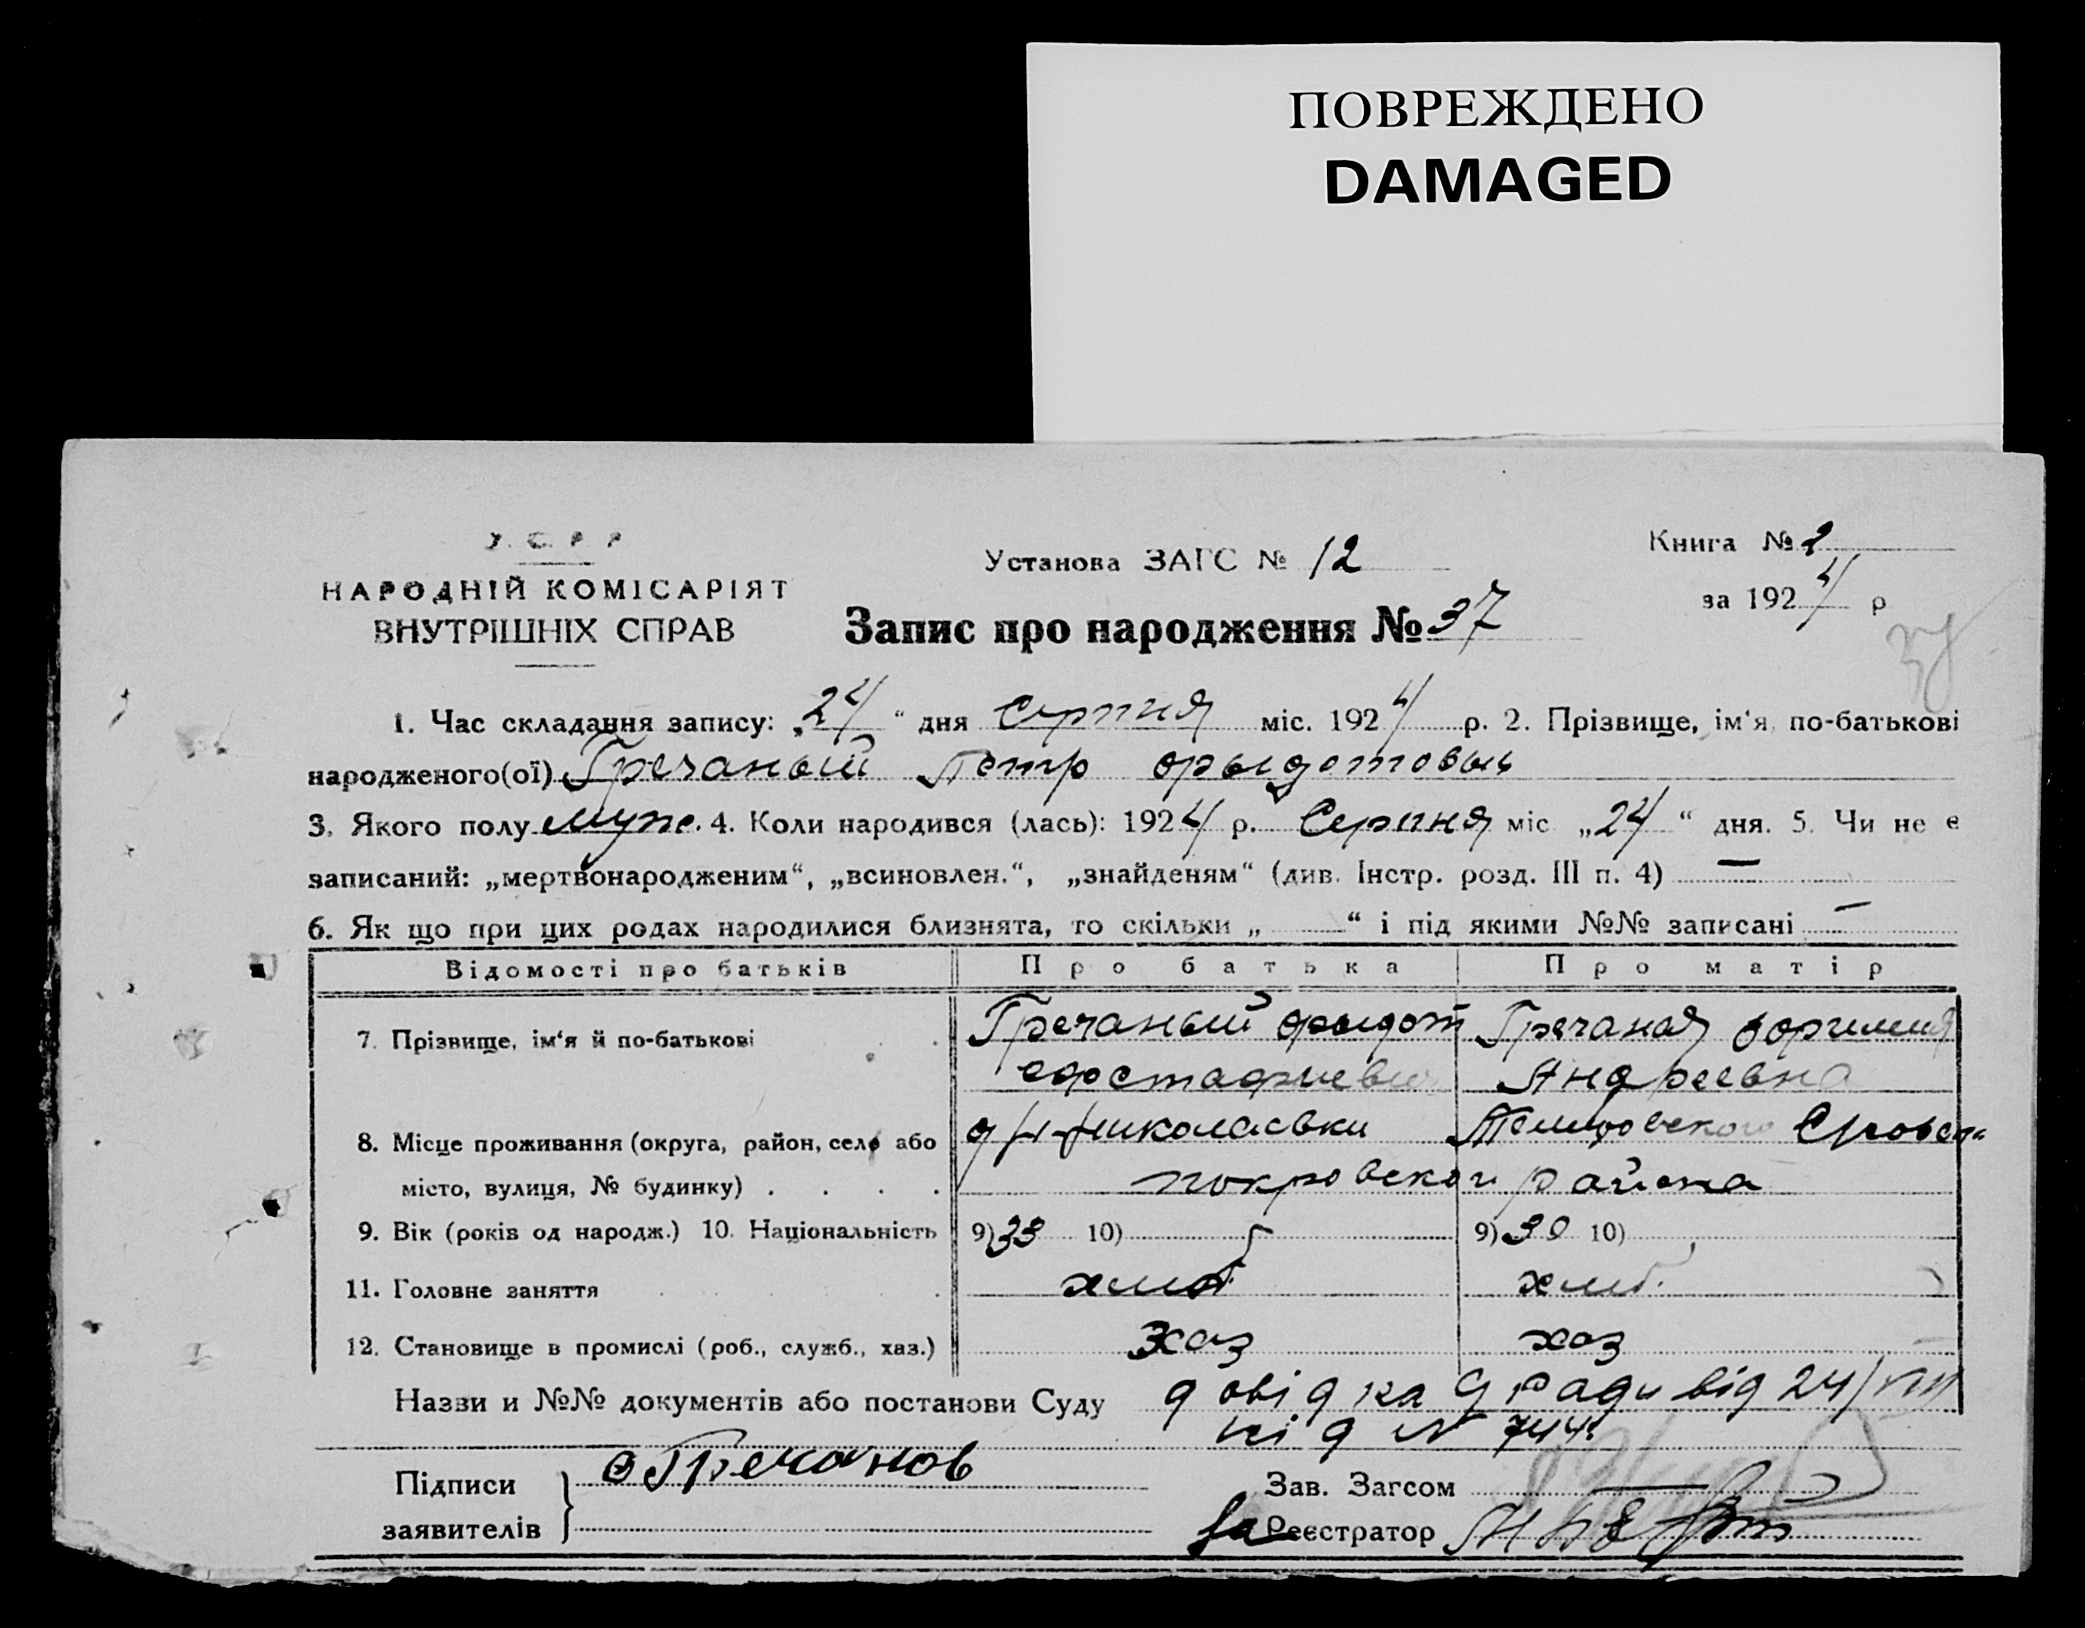 ПОВРЕЖДЕНО
DAMAGED
У. С. Р. Р.
НАРОДНІЙ КОМІСАРІЯТ
ВНУТРІШНІХ СПРАВ
Установа ЗАГС № 12
Книга № 2
за 1924 р
Запис про народження № 37
1. Час складання запису: „24“ дня Серпня міс. 1924 р. 2. Прізвище, ім‘я, по-батькові
народженого(ої) Гречаный Петр
3. Якого полу муж. 4. Коли народився (лась): 1924 р. Серпня міс. „24“ дня. 5. Чи не є
записаний: „мертвонародженим“, „всиновлен.“, „знайденям“ (див. Інстр. розд. III п. 4) —
6. Як що при цих родах народилися близнята, то скільки „ “ і під якими №№ записані —
Відомості про батьків Про батька Про матір
7. Прізвище, ім‘я й по-батькові Гречаный Гречаная
Андреевна
8. Місце проживання (округа, район, село або
місто, вулиця, № будинку) покровского района
9. Вік (років од народж.) 10. Національність 9) 33 10) 9) 30 10)
11. Головне заняття хліб хліб.
12. Становище в промислі (роб., служб., хаз.) хаз хаз
Назви и №№ документів або постанови Суду довідка С Ради від 24/VIII
під № 744.
Підписи
заявителів
Гречанов
Зав. Загсом
За Реєстратор